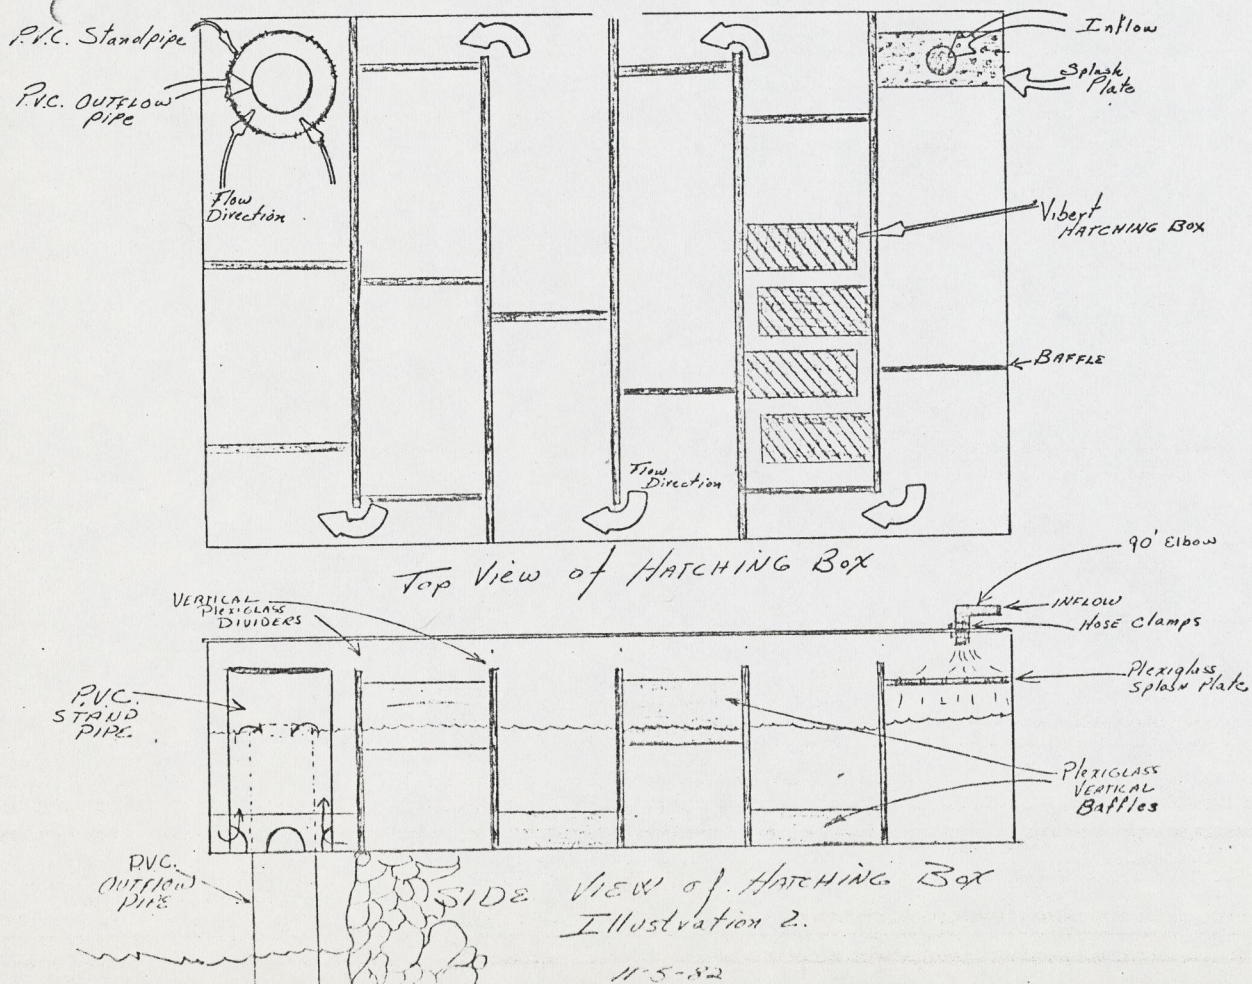 P.V.C. Standpipe
P.V.C. OUTFLOW
PIPE
Flow
Direction
Inflow
Splash
Plate
Vibert
HATCHING BOX
BAFFLE
Flow
Direction
Top View of HATCHING BOX
90' Elbow
INFLOW
HOSE Clamps
VERTICAL
PLEXIGLASS
DIVIDERS
Plexiglass
Splash Plate
P.V.C.
STAND
PIPE
PLEXIGLASS
VERTICAL
Baffles
P.V.C.
OUTFLOW
PIPE
SIDE VIEW of HATCHING BOX
Illustration 2.
11-5-82